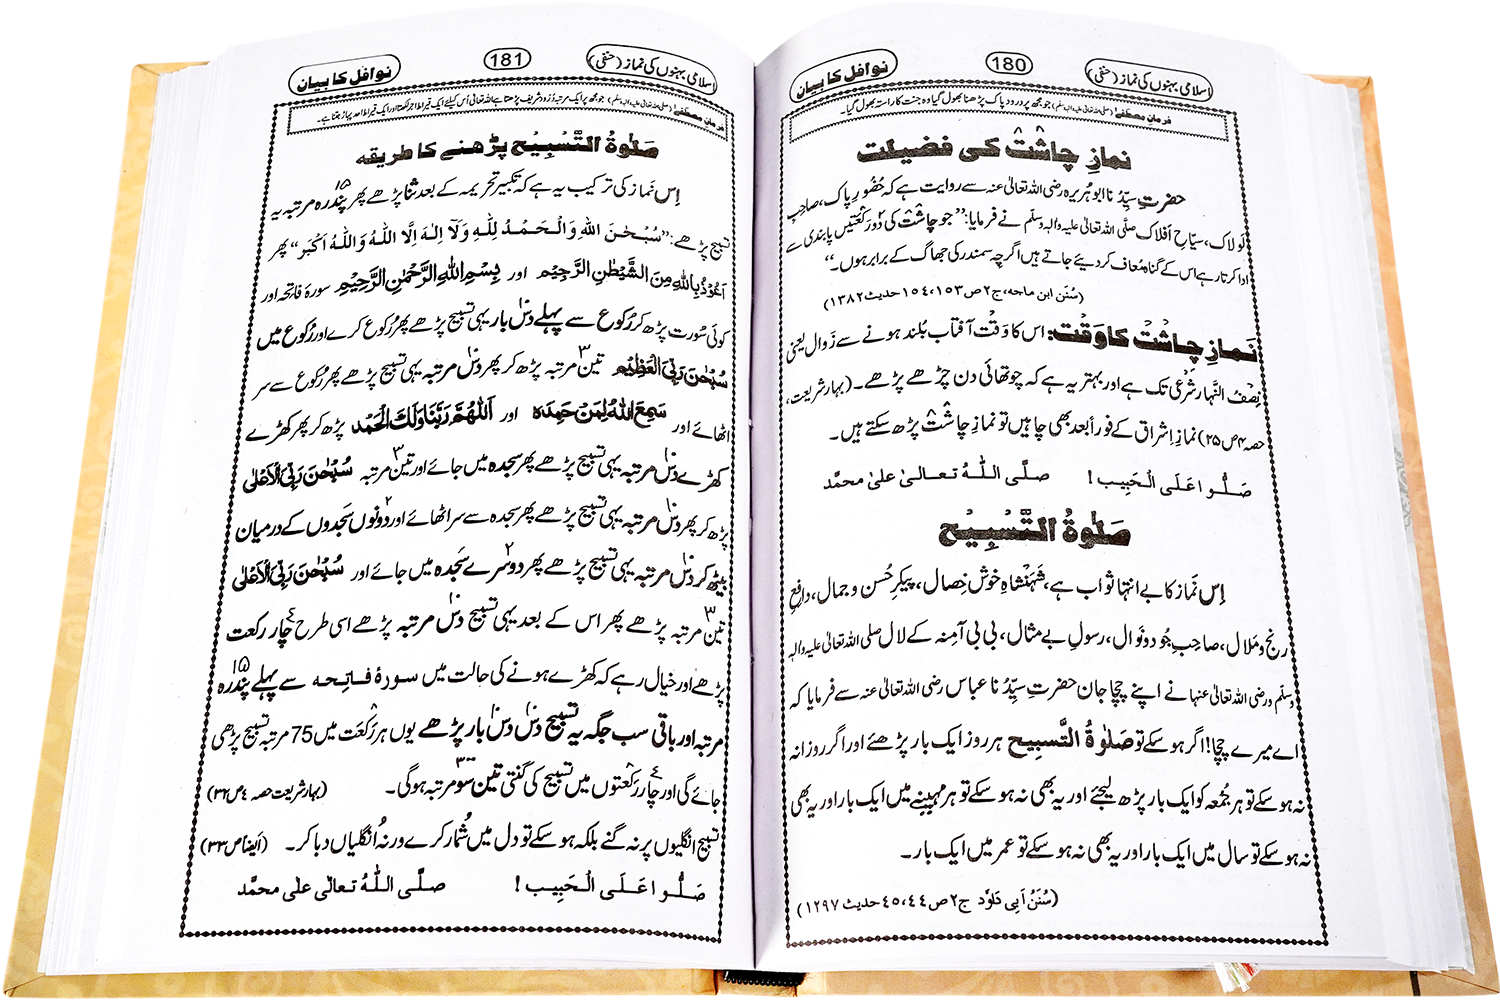 اسلامی بہنوں کی نماز (حنفی)
180
نوافل کا بیان
فرمانِ مصطفےٰ (صلی اللہ تعالیٰ علیہ والہ وسلم) جو مجھ پر درود پاک پڑھنا بھول گیا وہ جنت کا راستہ بھول گیا۔
نمازِ چاشت کی فضیلت
حضرتِ سیِّدُنا ابو ہریرہ رضی اللہ تعالیٰ عنہ سے روایت ہے کہ حُضُورِ پاک، صاحبِ
لَولاک، سیّاحِ اَفلاک صلَّی اللہ تعالیٰ علیہ والہٖ وسلَّم نے فرمایا: ”جو چاشت کی دو رَکعتیں پابندی سے
ادا کرتا رہے اس کے گناہ مُعاف کر دیئے جاتے ہیں اگرچہ سمندر کی جھاگ کے برابر ہوں۔“
(سُنَن ابن ماجہ، ج٢ ص١٥٣،١٥٤ حدیث ١٣٨٢)
نَمازِ چاشت کا وَقت: اس کا وَقت آفتاب بُلند ہونے سے زَوال یعنی
نِصفُ النَّہار شَرعی تک ہے اور بہتر یہ ہے کہ چوتھائی دن چڑھے پڑھے۔ (بہارِ شریعت،
حصہ ۴ ص ۲۵) نمازِ اِشراق کے فوراً بعد بھی چاہیں تو نمازِ چاشت پڑھ سکتے ہیں۔
صَلُّوا عَلَی الْحَبِیب! صلَّی اللّٰہُ تعالیٰ علیٰ محمَّد
صَلٰوۃُ التَّسْبِیْح
اِس نَماز کا بے انتہا ثواب ہے، شَہَنْشاہِ خوش خِصال، پیکرِ حُسن و جمال، دافِعِ
رنج و مَلال، صاحبِ جُود و نَوال، رسولِ بے مثال، بی بی آمِنہ کے لال صلی اللہ تعالیٰ علیہ والہٖ
وسلَّم و رضی اللہ تعالیٰ عنہا نے اپنے چچا جان حضرتِ سیِّدُنا عباس رضی اللہ تعالیٰ عنہ سے فرمایا کہ
اے میرے چچا! اگر ہو سکے تو صَلٰوۃُ التَّسبِیح ہر روز ایک بار پڑھئے اور اگر روزانہ
نہ ہو سکے تو ہر جُمعہ کو ایک بار پڑھ لیجئے اور یہ بھی نہ ہو سکے تو ہر مہینے میں ایک بار اور یہ بھی
نہ ہو سکے تو سال میں ایک بار اور یہ بھی نہ ہو سکے تو عمر میں ایک بار۔
(سُنَنُ اَبِی دَاوٗد ج٢ ص٤٤،٤٥ حدیث ١٢٩٧)
اسلامی بہنوں کی نماز (حنفی)
181
نوافل کا بیان
فرمانِ مصطفےٰ (صلی اللہ تعالیٰ علیہ والہ وسلم) جو مجھ پر ایک مرتبہ دُرُود شریف پڑھتا ہے اللہ تعالیٰ اُس کیلئے ایک قیراط اجر لکھتا اور ایک قیراط احد پہاڑ جتنا ہے۔
صَلٰوۃُ التَّسْبِیْح پڑھنے کا طریقہ
اِس نَماز کی ترکیب یہ ہے کہ تکبیرِ تحریمہ کے بعد ثنا پڑھے پھر پندرہ ۱۵ مرتبہ یہ
تسبیح پڑھے: ”سُبْحٰنَ اللہِ وَالْحَمْدُ لِلّٰہِ وَلَآ اِلٰہَ اِلَّا اللّٰہُ وَاللّٰہُ اَکْبَر“ پھر
اَعُوْذُ بِاللّٰہِ مِنَ الشَّیْطٰنِ الرَّجِیْم اور بِسْمِ اللّٰہِ الرَّحْمٰنِ الرَّحِیْم سورۂ فاتحہ اور
کوئی سُورت پڑھ کر رُکوع سے پہلے دس ۱۰ بار یہی تسبیح پڑھے پھر رُکوع کرے اور رُکوع میں
سُبْحٰنَ رَبِّیَ الْعَظِیْم تین ۳ مرتبہ پڑھ کر پھر دس ۱۰ مرتبہ یہی تسبیح پڑھے پھر رُکوع سے سر
اٹھائے اور سَمِعَ اللّٰہُ لِمَنْ حَمِدَہ اور اَللّٰہُمَّ رَبَّنَا وَلَکَ الْحَمْد پڑھ کر پھر کھڑے
کھڑے دس ۱۰ مرتبہ یہی تسبیح پڑھے پھر سجدہ میں جائے اور تین ۳ مرتبہ سُبْحٰنَ رَبِّیَ الْاَعْلٰی
پڑھ کر پھر دس ۱۰ مرتبہ یہی تسبیح پڑھے پھر سجدہ سے سر اٹھائے اور دونوں ۲ سَجدوں کے درمیان
بیٹھ کر دس ۱۰ مرتبہ یہی تسبیح پڑھے پھر دوسرے ۲ سَجدہ میں جائے اور سُبْحٰنَ رَبِّیَ الْاَعْلٰی
تین ۳ مرتبہ پڑھے پھر اس کے بعد یہی تسبیح دس ۱۰ مرتبہ پڑھے اسی طرح چار ۴ رکعت
پڑھے اور خیال رہے کہ کھڑے ہونے کی حالت میں سورۂ فاتِحہ سے پہلے پندرہ ۱۵
مرتبہ اور باقی سب جگہ یہ تسبیح دس ۱۰ دس ۱۰ بار پڑھے یوں ہر رَکعَت میں 75 مرتبہ تسبیح پڑھی
جائے گی اور چار ۴ رَکعتوں میں تسبیح کی گنتی تین سو ۳۰۰ مرتبہ ہوگی۔ (بہارِ شریعت حصہ ٤ ص ٣٢)
تسبیح انگلیوں پر نہ گنے بلکہ ہو سکے تو دل میں شُمار کرے ورنہ اُنگلیاں دبا کر۔ (اَیضاً ص ٣٣)
صَلُّوا عَلَی الْحَبِیب! صلَّی اللّٰہُ تعالیٰ علیٰ محمَّد